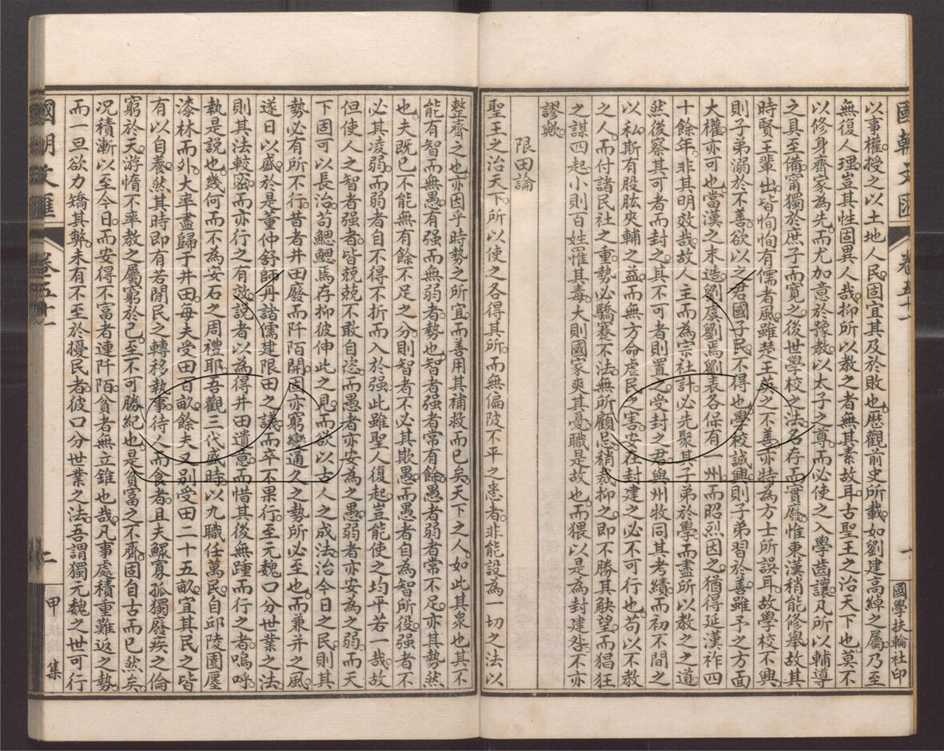 國朝文匯 卷五十一
一 國學扶輪社印
以事權授之以土地人民固宜其及於敗也厯觀前史所載如劉建高綽之屬乃至
無復人理豈其性固異人哉抑所以教之者無其素故耳古聖王之治天下也莫不
以修身齊家為先而尤加意於豫教以太子之尊而必使之入學齒讓凡所以輔導
之具至備甯獨於庶子而寛之後世學校之法名存而實廢惟東漢稍能修舉故其
時賢王輩出皆恂恂有儒者風雖楚王英之不善亦特為方士所誤耳故學校不興
則子弟溺於不善欲以之君國子民不得也學校誠興則子弟習於善雖予之方面
大權亦可也當漢之末造劉虞劉焉劉表各保有一州而昭烈因之猶得延漢祚四
十餘年非其明效哉故人主而為宗社計必先聚其子弟於學而盡所以教之之道
然後察其可者而封之其不可者則置之受封之君與州牧同其考績而初不間之
以私斯有股肱夾輔之益而無方命虐民之害安在封建之必不可行也苟以不教
之人而付諸民社之重勢必驕蹇不法無所顧忌稍裁抑之即不勝其觖望而猖狂
之謀四起小則百姓罹其毒大則國家受其憂職是故也而猥以是為封建咎不亦
謬歟
限田論
聖王之治天下所以使之各得其所而無偏陂不平之患者非能設為一切之法以
整齊之也亦因乎時勢之所宜而善用其補救而已矣天下之人如此其衆也其不
能有智而無愚有强而無弱者勢也智者强者常有餘愚者弱者常不足亦其勢然
也夫既已不能無有餘不足之分則智者不必其欺愚而愚者自為智所役强者不
必其凌弱而弱者自不得不折而入於强此雖聖人復起豈能使之均平若一哉故
但使人之智者强者皆兢兢不敢自恣而愚者亦安為之愚弱者亦安為之弱而天
下固可以長治苟鰓鰓焉存抑彼伸此之見而欲以古人之成法治今日之民則其
勢必有所不行昔者井田廢而阡陌開固亦窮變通久之勢所必至也而兼并之風
遂日以盛於是董仲舒師丹諸儒建限田之議而卒不果行至元魏口分世業之法
則其法較密而亦行之有效説者以為得井田遺意而惜其後無踵而行之者嗚呼
執是説也幾何而不為安石之周禮耶吾觀三代盛時以九職任萬民自邱陵園廛
漆林而外大率盡歸于井田每夫受田百畝餘夫又别受田二十五畝宜其民之皆
有以自養然其時即有若閒民之轉移執事待人而食者且夫鰥寡孤獨廢疾之倫
窮於天游惰不率教之屬窮於己至不可勝紀也是貧富之不齊固自古而已然矣
况積漸以至今日而安得不富者連阡陌貧者無立錐也哉凡事處積重難返之勢
而一旦欲力矯其弊未有不至於擾民者彼口分世業之法吾謂獨元魏之世可行
國朝文匯 卷五十一
二 甲集